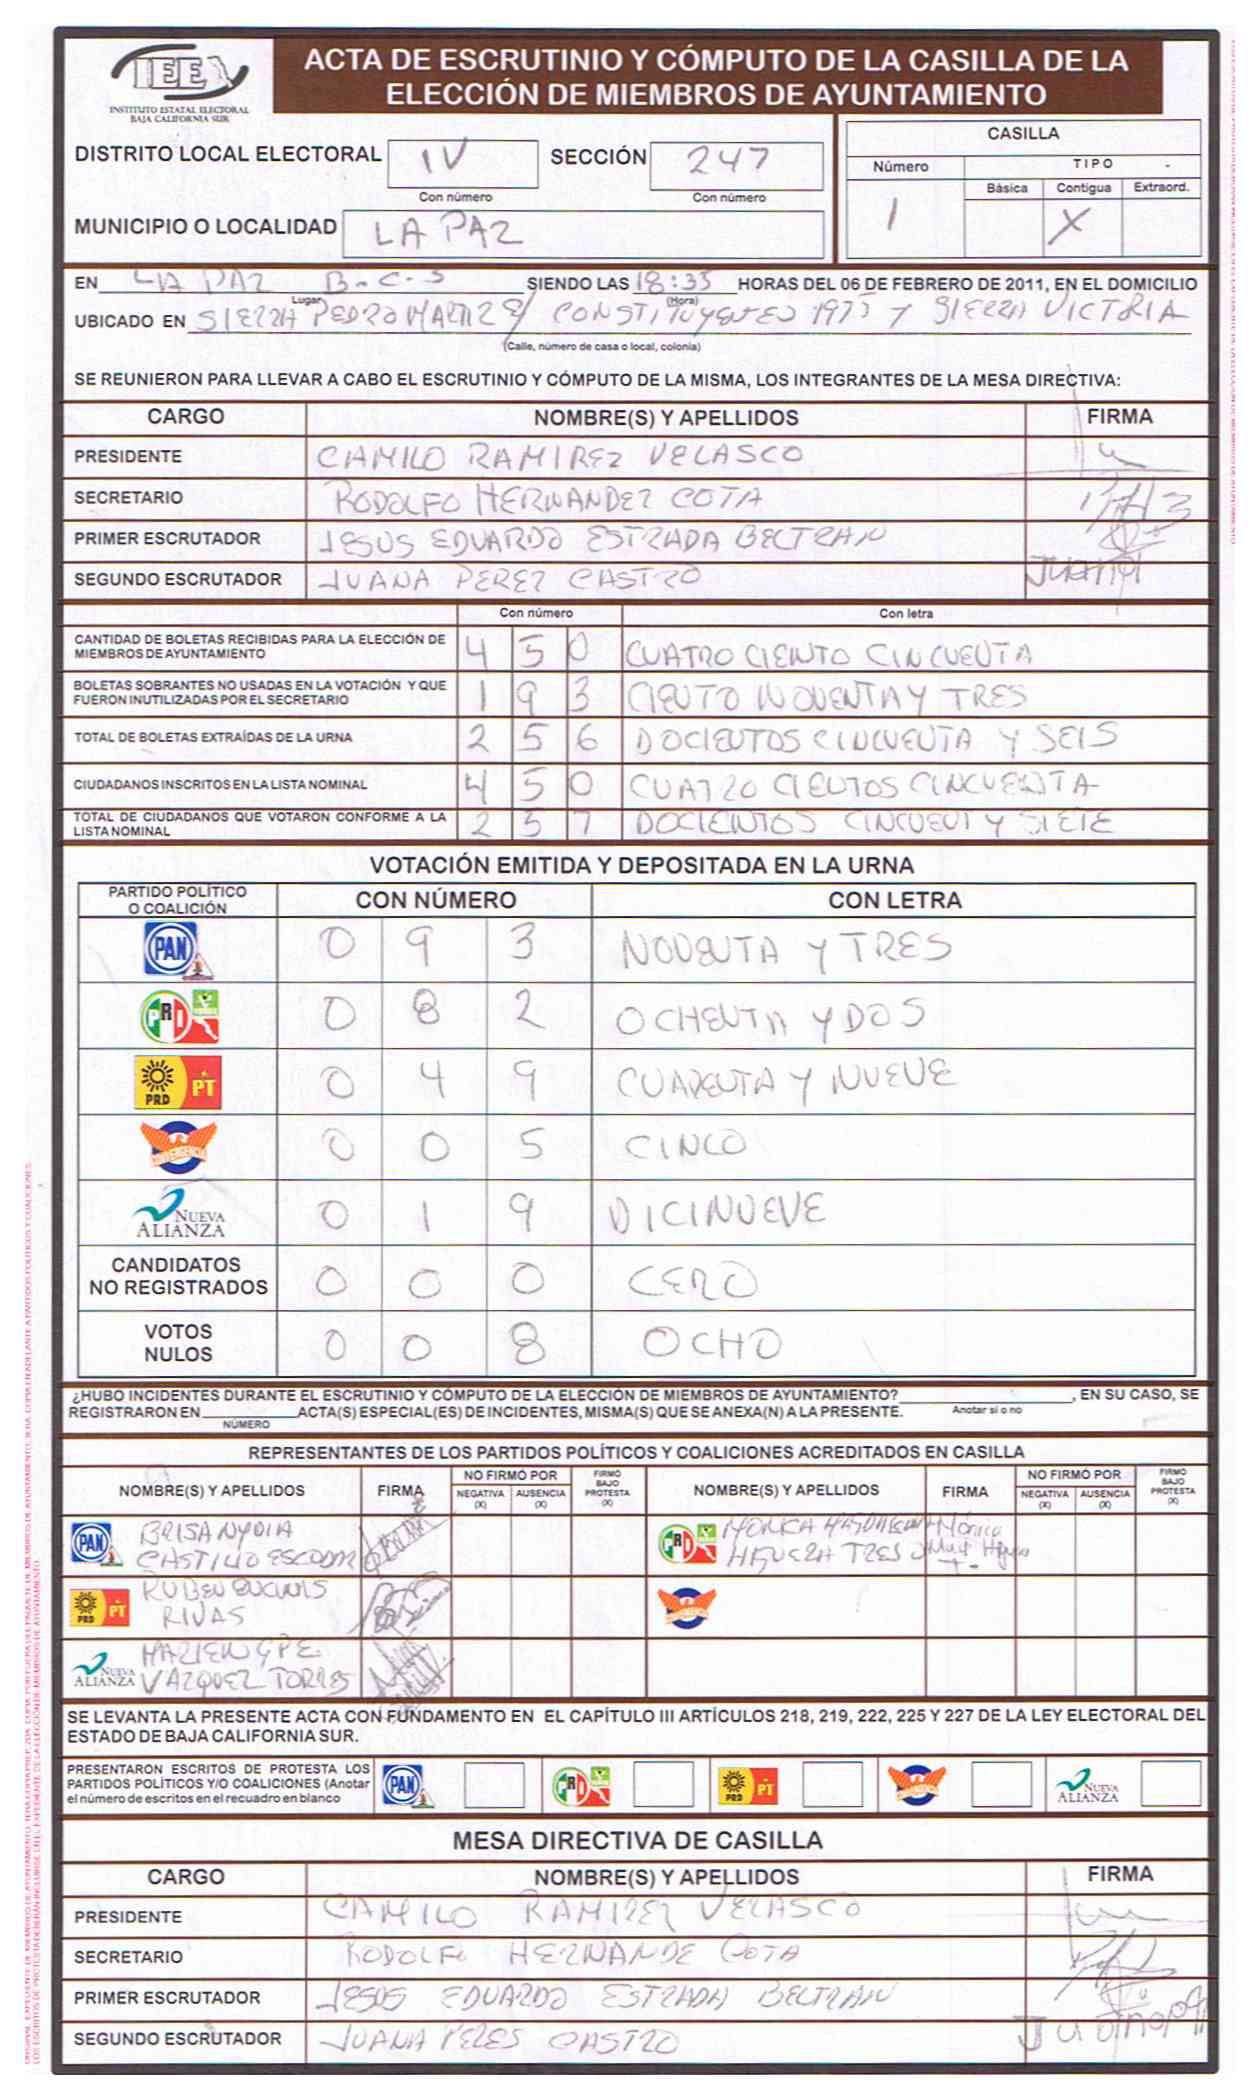 IEEX
INSTITUTO ESTATAL ELECTORAL
BAJA CALIFORNIA SUR
ACTA DE ESCRUTINIO Y CÓMPUTO DE LA CASILLA DE LA
ELECCIÓN DE MIEMBROS DE AYUNTAMIENTO
DISTRITO LOCAL ELECTORAL IV SECCIÓN 247
Con número Con número
MUNICIPIO O LOCALIDAD LA PAZ
CASILLA
Número TIPO
Básica Contigua Extraord.
1 X
EN LA PAZ B.C.S SIENDO LAS 18:35 HORAS DEL 06 DE FEBRERO DE 2011, EN EL DOMICILIO
Lugar (Hora)
UBICADO EN SIERRA PEDRO MARTIR E/ CONSTITUYENTES 1975 Y SIERRA VICTORIA
(Calle, número de casa o local, colonia)
SE REUNIERON PARA LLEVAR A CABO EL ESCRUTINIO Y CÓMPUTO DE LA MISMA, LOS INTEGRANTES DE LA MESA DIRECTIVA:
CARGO NOMBRE(S) Y APELLIDOS FIRMA
PRESIDENTE CAMILO RAMIREZ VELASCO
SECRETARIO RODOLFO HERNANDEZ COTA
PRIMER ESCRUTADOR JESUS EDUARDO ESTRADA BELTRAN
SEGUNDO ESCRUTADOR JUANA PEREZ CASTRO
Con número Con letra
CANTIDAD DE BOLETAS RECIBIDAS PARA LA ELECCIÓN DE
MIEMBROS DE AYUNTAMIENTO 4 5 0 CUATRO CIENTO CINCUENTA
BOLETAS SOBRANTES NO USADAS EN LA VOTACIÓN Y QUE
FUERON INUTILIZADAS POR EL SECRETARIO 1 9 3 CIENTO NOVENTA Y TRES
TOTAL DE BOLETAS EXTRAÍDAS DE LA URNA 2 5 6 DOCIENTOS CINCUENTA Y SEIS
CIUDADANOS INSCRITOS EN LA LISTA NOMINAL 4 5 0 CUATRO CIENTOS CINCUENTA
TOTAL DE CIUDADANOS QUE VOTARON CONFORME A LA
LISTA NOMINAL 2 5 7 DOCIENTOS CINCUENT Y SIETE
VOTACIÓN EMITIDA Y DEPOSITADA EN LA URNA
PARTIDO POLÍTICO
O COALICIÓN CON NÚMERO CON LETRA
PAN 0 9 3 NOVENTA Y TRES
PRI 0 8 2 OCHENTA Y DOS
PRD PT 0 4 9 CUARENTA Y NUEVE
CONVERGENCIA 0 0 5 CINCO
NUEVA ALIANZA 0 1 9 DICINUEVE
CANDIDATOS
NO REGISTRADOS 0 0 0 CERO
VOTOS
NULOS 0 0 8 OCHO
¿HUBO INCIDENTES DURANTE EL ESCRUTINIO Y CÓMPUTO DE LA ELECCIÓN DE MIEMBROS DE AYUNTAMIENTO? , EN SU CASO, SE
REGISTRARON EN ACTA(S) ESPECIAL(ES) DE INCIDENTES, MISMA(S) QUE SE ANEXA(N) A LA PRESENTE. Anotar si o no
NÚMERO
REPRESENTANTES DE LOS PARTIDOS POLÍTICOS Y COALICIONES ACREDITADOS EN CASILLA
NOMBRE(S) Y APELLIDOS FIRMA NO FIRMÓ POR NEGATIVA (X) AUSENCIA (X) FIRMÓ BAJO PROTESTA (X) NOMBRE(S) Y APELLIDOS FIRMA NO FIRMÓ POR NEGATIVA (X) AUSENCIA (X) FIRMÓ BAJO PROTESTA (X)
PAN BRISA NYDIA
CASTILLO
PRI MONICA
HIGUERA Mónica
PRD PT RUBEN
RIVAS
CONVERGENCIA
NUEVA ALIANZA MARIEN GPE.
VAZQUEZ TORRES
SE LEVANTA LA PRESENTE ACTA CON FUNDAMENTO EN EL CAPÍTULO III ARTÍCULOS 218, 219, 222, 225 Y 227 DE LA LEY ELECTORAL DEL
ESTADO DE BAJA CALIFORNIA SUR.
PRESENTARON ESCRITOS DE PROTESTA LOS
PARTIDOS POLÍTICOS Y/O COALICIONES (Anotar
el número de escritos en el recuadro en blanco
PAN PRI PRD PT CONVERGENCIA NUEVA ALIANZA
MESA DIRECTIVA DE CASILLA
CARGO NOMBRE(S) Y APELLIDOS FIRMA
PRESIDENTE CAMILO RAMIREZ VELASCO
SECRETARIO RODOLFO HERNANDE COTA
PRIMER ESCRUTADOR JESUS EDUARDO ESTRADA BELTRAN
SEGUNDO ESCRUTADOR JUANA PERES CASTRO